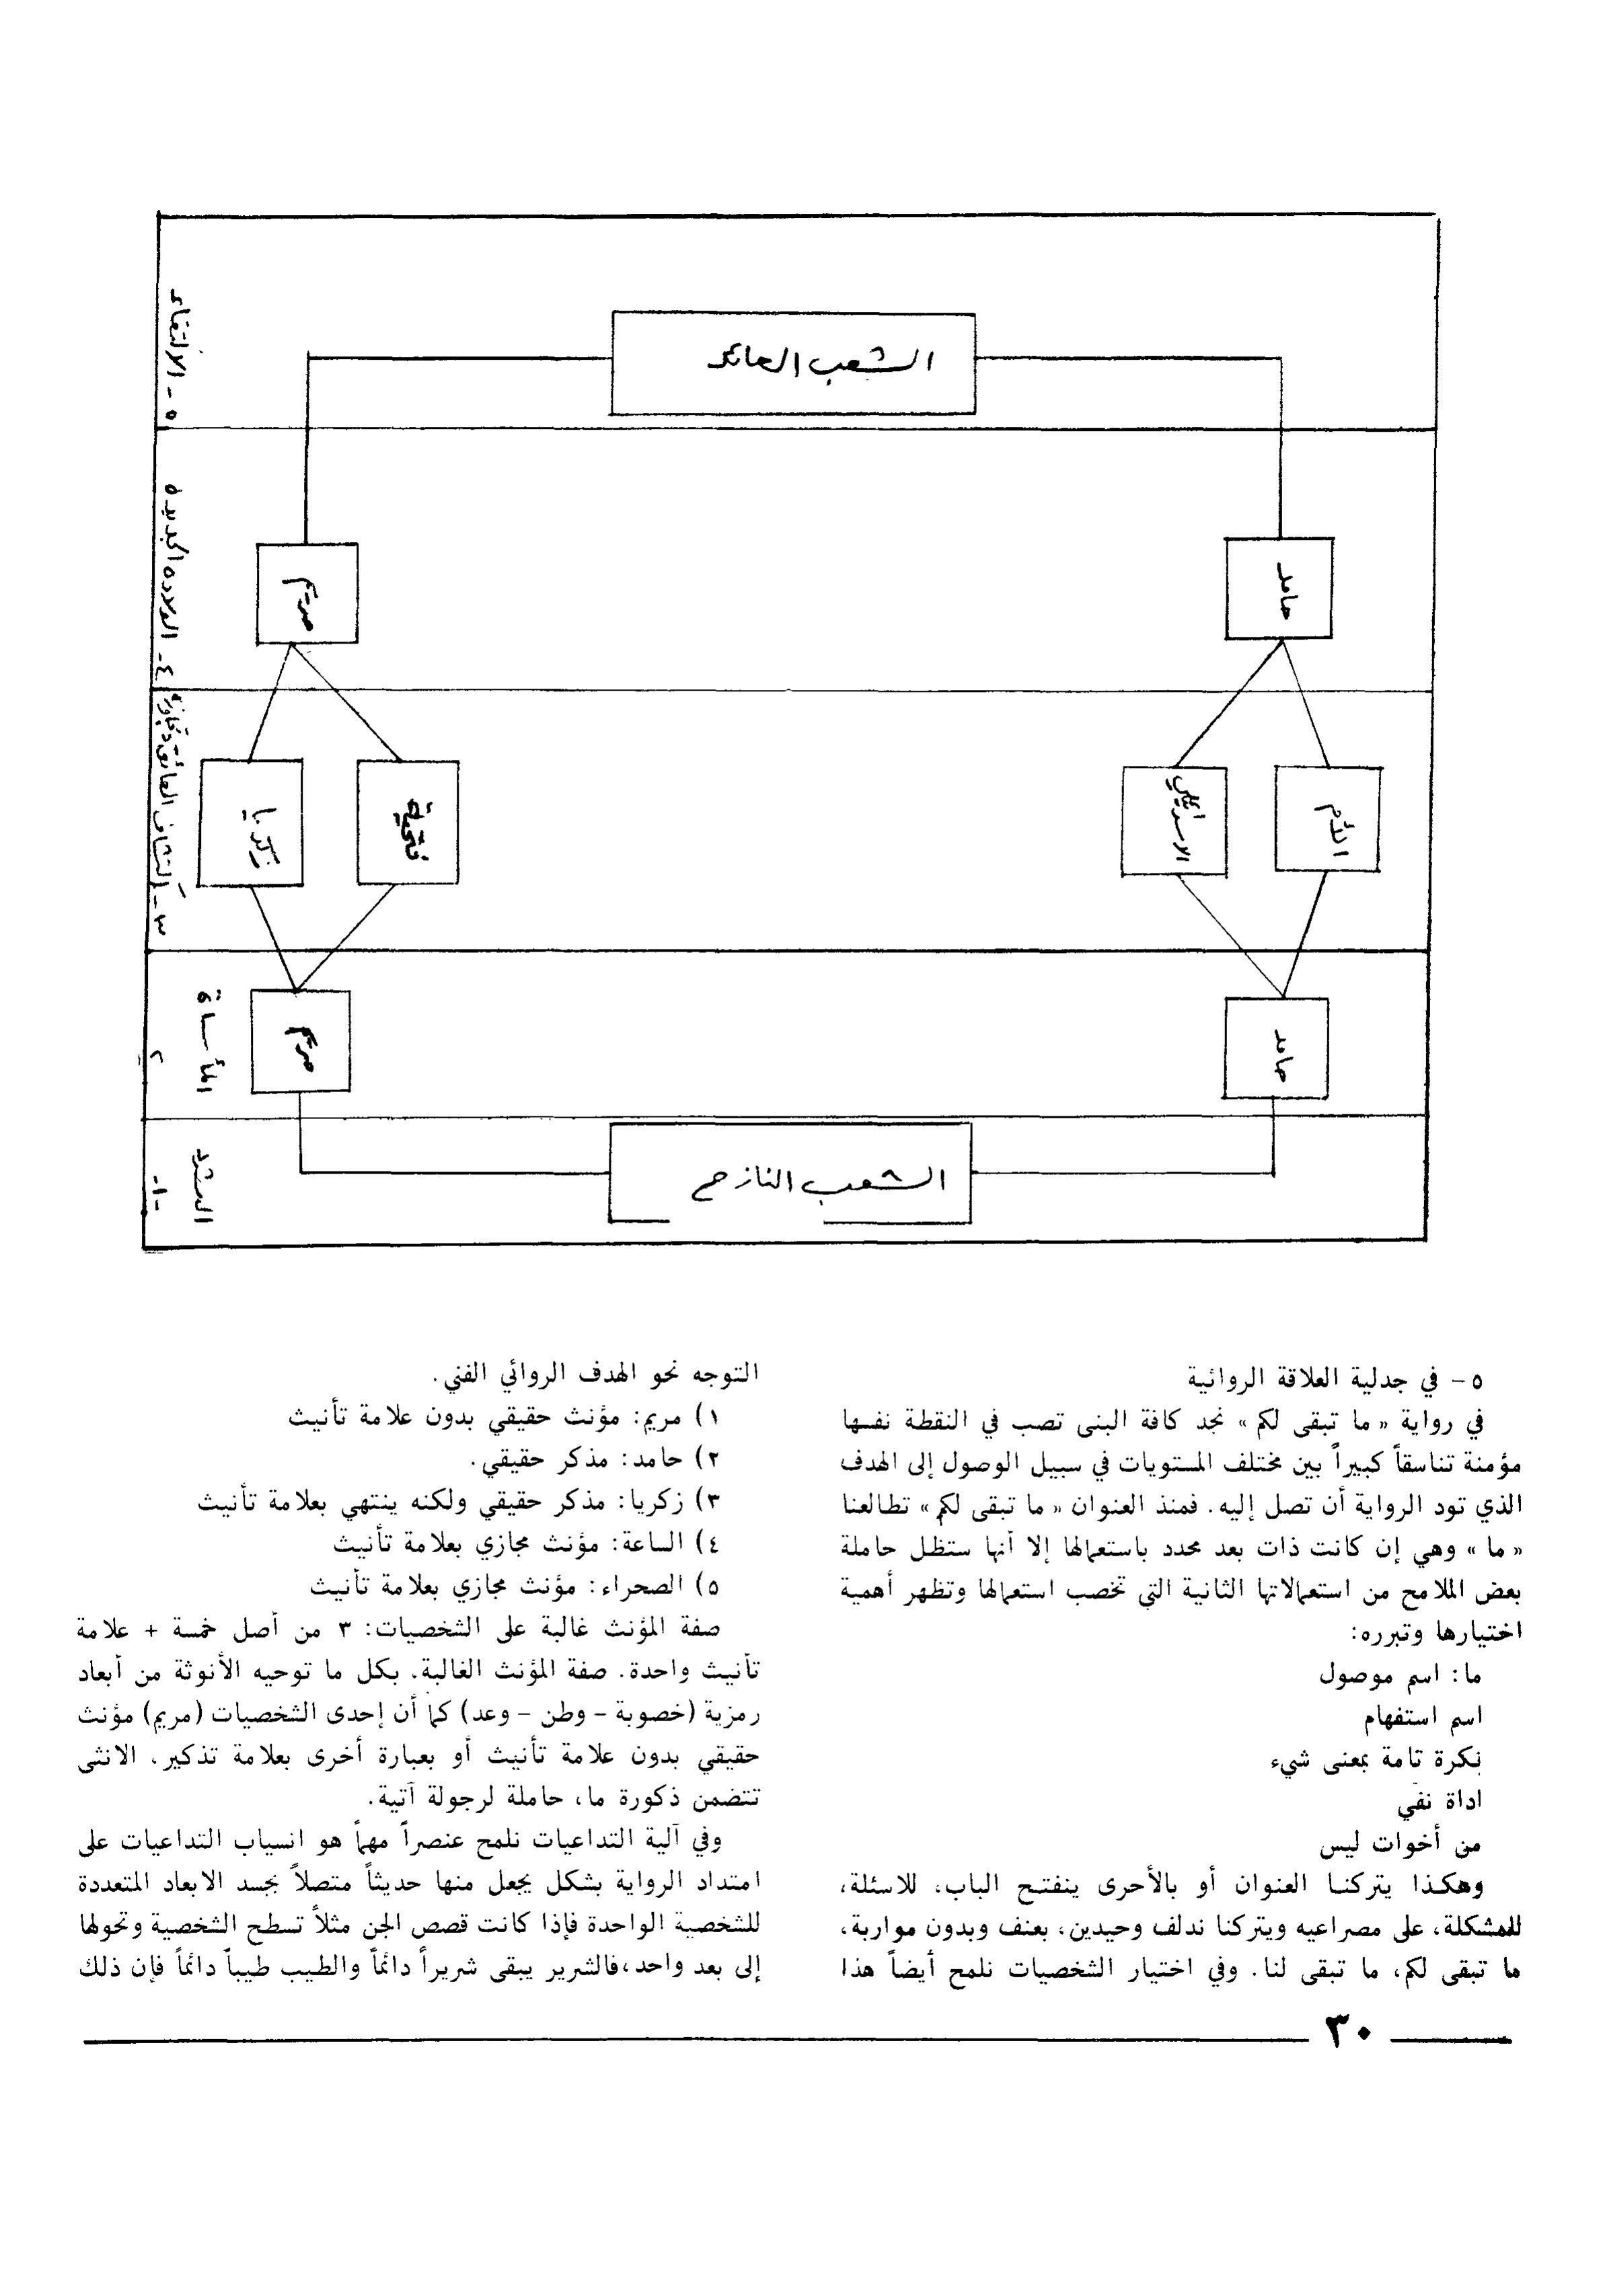 ٥ - الالتقاء
الشعب العائد
٤ - الولادة الجديدة
مريم
حامد
٣ - اكتشاف العائق وتجاوزه
زكريا
فتحية
الاسرائيلي
الأم
٢
المأساة
مريم
حامد
-١-
التشرد
الشعب النازح
٥ - في جدلية العلاقة الروائية
في رواية « ما تبقى لكم » نجد كافة البنى تصب في النقطة نفسها
مؤمنة تناسقاً كبيراً بين مختلف المستويات في سبيل الوصول إلى الهدف
الذي تود الرواية أن تصل إليه. فمنذ العنوان « ما تبقى لكم » تطالعنا
« ما » وهي إن كانت ذات بعد محدد باستعمالها إلا أنها ستظل حاملة
بعض الملامح من استعمالاتها الثانية التي تخصب استعمالها وتظهر أهمية
اختيارها وتبرره:
ما: اسم موصول
اسم استفهام
نكرة تامة بمعنى شيء
اداة نفي
من أخوات ليس
وهكذا يتركنا العنوان أو بالأحرى ينفتح الباب، للاسئلة،
للمشكلة، على مصراعيه ويتركنا ندلف وحيدين، بعنف وبدون مواربة،
ما تبقى لكم، ما تبقى لنا. وفي اختيار الشخصيات نلمح أيضاً هذا
التوجه نحو الهدف الروائي الفني.
١) مريم: مؤنث حقيقي بدون علامة تأنيث
٢) حامد: مذكر حقيقي.
٣) زكريا: مذكر حقيقي ولكنه ينتهي بعلامة تأنيث
٤) الساعة: مؤنث مجازي بعلامة تأنيث
٥) الصحراء: مؤنث مجازي بعلامة تأنيث
صفة المؤنث غالبة على الشخصيات: ٣ من أصل خمسة + علامة
تأنيث واحدة. صفة المؤنث الغالبة. بكل ما توحيه الأنوثة من أبعاد
رمزية (خصوبة - وطن - وعد) كما أن إحدى الشخصيات (مريم) مؤنث
حقيقي بدون علامة تأنيث أو بعبارة أخرى بعلامة تذكير. الانثى
تتضمن ذكورة ما، حاملة لرجولة آتية.
وفي آلية التداعيات نلمح عنصراً مهماً هو انسياب التداعيات على
امتداد الرواية بشكل يجعل منها حديثاً متصلاً بجسد الابعاد المتعددة
للشخصية الواحدة فإذا كانت قصص الجن مثلاً تسطح الشخصية وتحولها
إلى بعد واحد، فالشرير يبقى شريراً دائماً والطيب طيباً دائماً فإن ذلك
٣٠